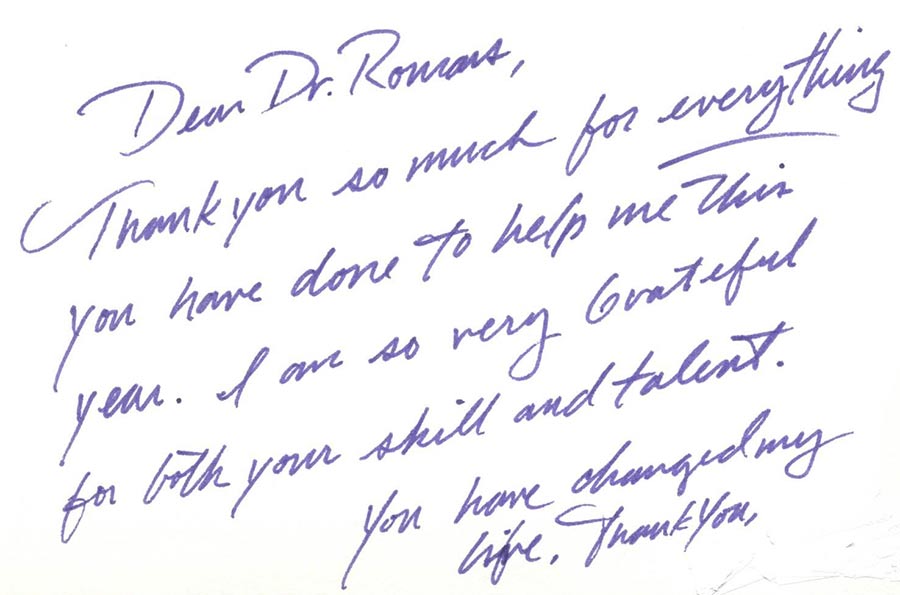 Dear Dr. Romans,
Thank you so much for everything
you have done to help me this
year. I am so very Grateful
for both your skill and talent.
You have changed my
life. Thank You,